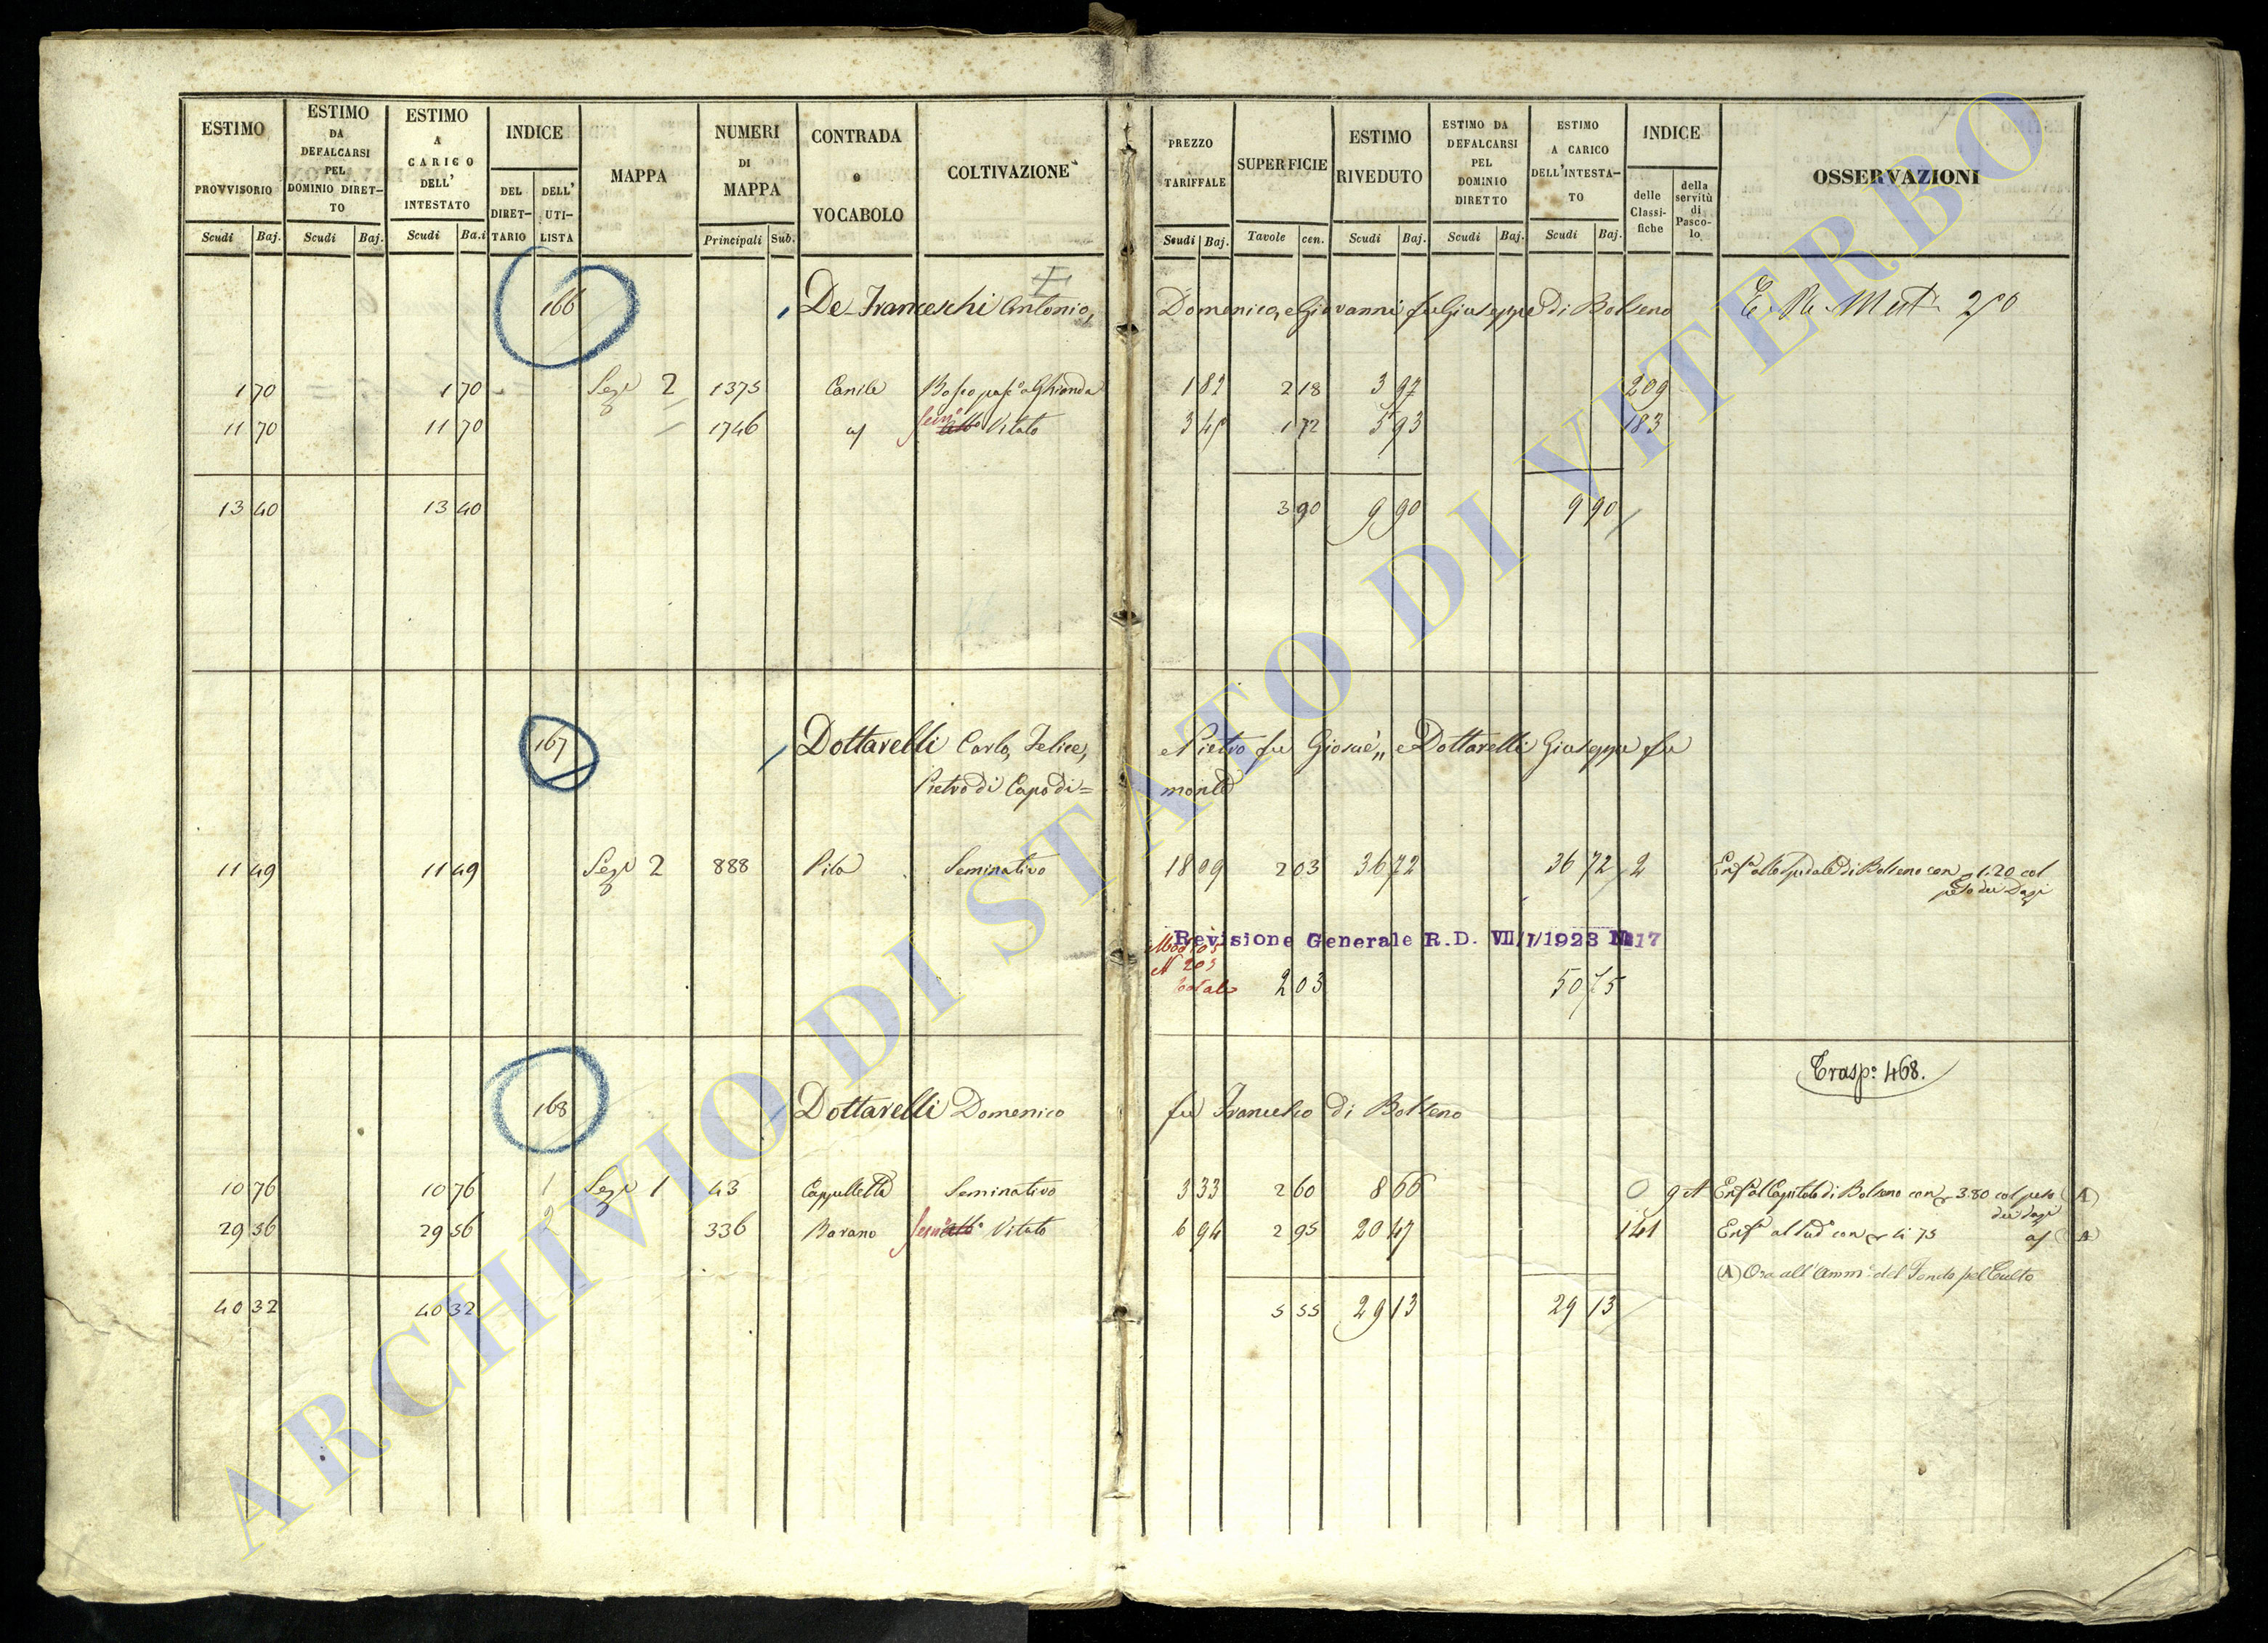 ESTIMO PROVVISORIO Scudi Baj.
ESTIMO DA DEFALCARSI PEL DOMINIO DIRET- TO Scudi Baj.
ESTIMO A CARICO DELL' INTESTATO Scudi Ba.i
INDICE DEL DIRET- TARIO DELL' UTI- LISTA
MAPPA
NUMERI DI MAPPA Principali Sub.
CONTRADA o VOCABOLO
COLTIVAZIONE
PREZZO TARIFFALE Scudi Baj.
SUPERFICIE Tavole cen.
ESTIMO RIVEDUTO Scudi Baj.
ESTIMO DA DEFALCARSI PEL DOMINIO DIRETTO Scudi Baj.
ESTIMO A CARICO DELL'INTESTA- TO Scudi Baj.
INDICE delle Classi- fiche della servitù di Pasco- lo
OSSERVAZIONI
166 De-Franceschi Antonio, Domenico, e Giovanni fu Giuseppe di Bolseno
1 70 1 70 Sezº 2 1375 Canile Bosco 1 82 2 18 3 97 209
11 70 11 70 1746 Vitato 3 45 1 72 5 93 183
13 40 13 40 3 90 9 90 9 90
167 Dottarelli Carlo, Felice, e Pietro fu Giosuè,, e Dottarelli Giuseppe fu
Pietro di Capo di= monte
11 49 11 49 Sezº 2 888 Pila Seminativo 18 09 2 03 36 72 36 72 2 Enfª allo Spedale di Bolseno con 1:20 col
peso dei Dazi
Revisione Generale R.D. VII/I/1923 N 17
N 203
totale 2 03 50 75
Trasp: 468.
168 Dottarelli Domenico fu Francesco di Bolseno
10 76 10 76 1 Sezº 1 43 Cappelletta Seminativo 3 33 2 60 8 66 Enfª al Capitolo di Bolseno con 3:80 col peso (A)
dei dazi
29 56 29 56 2 336 Barano Vitato 6 94 2 95 20 47 141 Enfª al sudº con 4:75 (A)
(A) Ora all'Ammº del Fondo pel Culto
40 32 40 32 5 55 29 13 29 13
ARCHIVIO DI STATO DI VITERBO